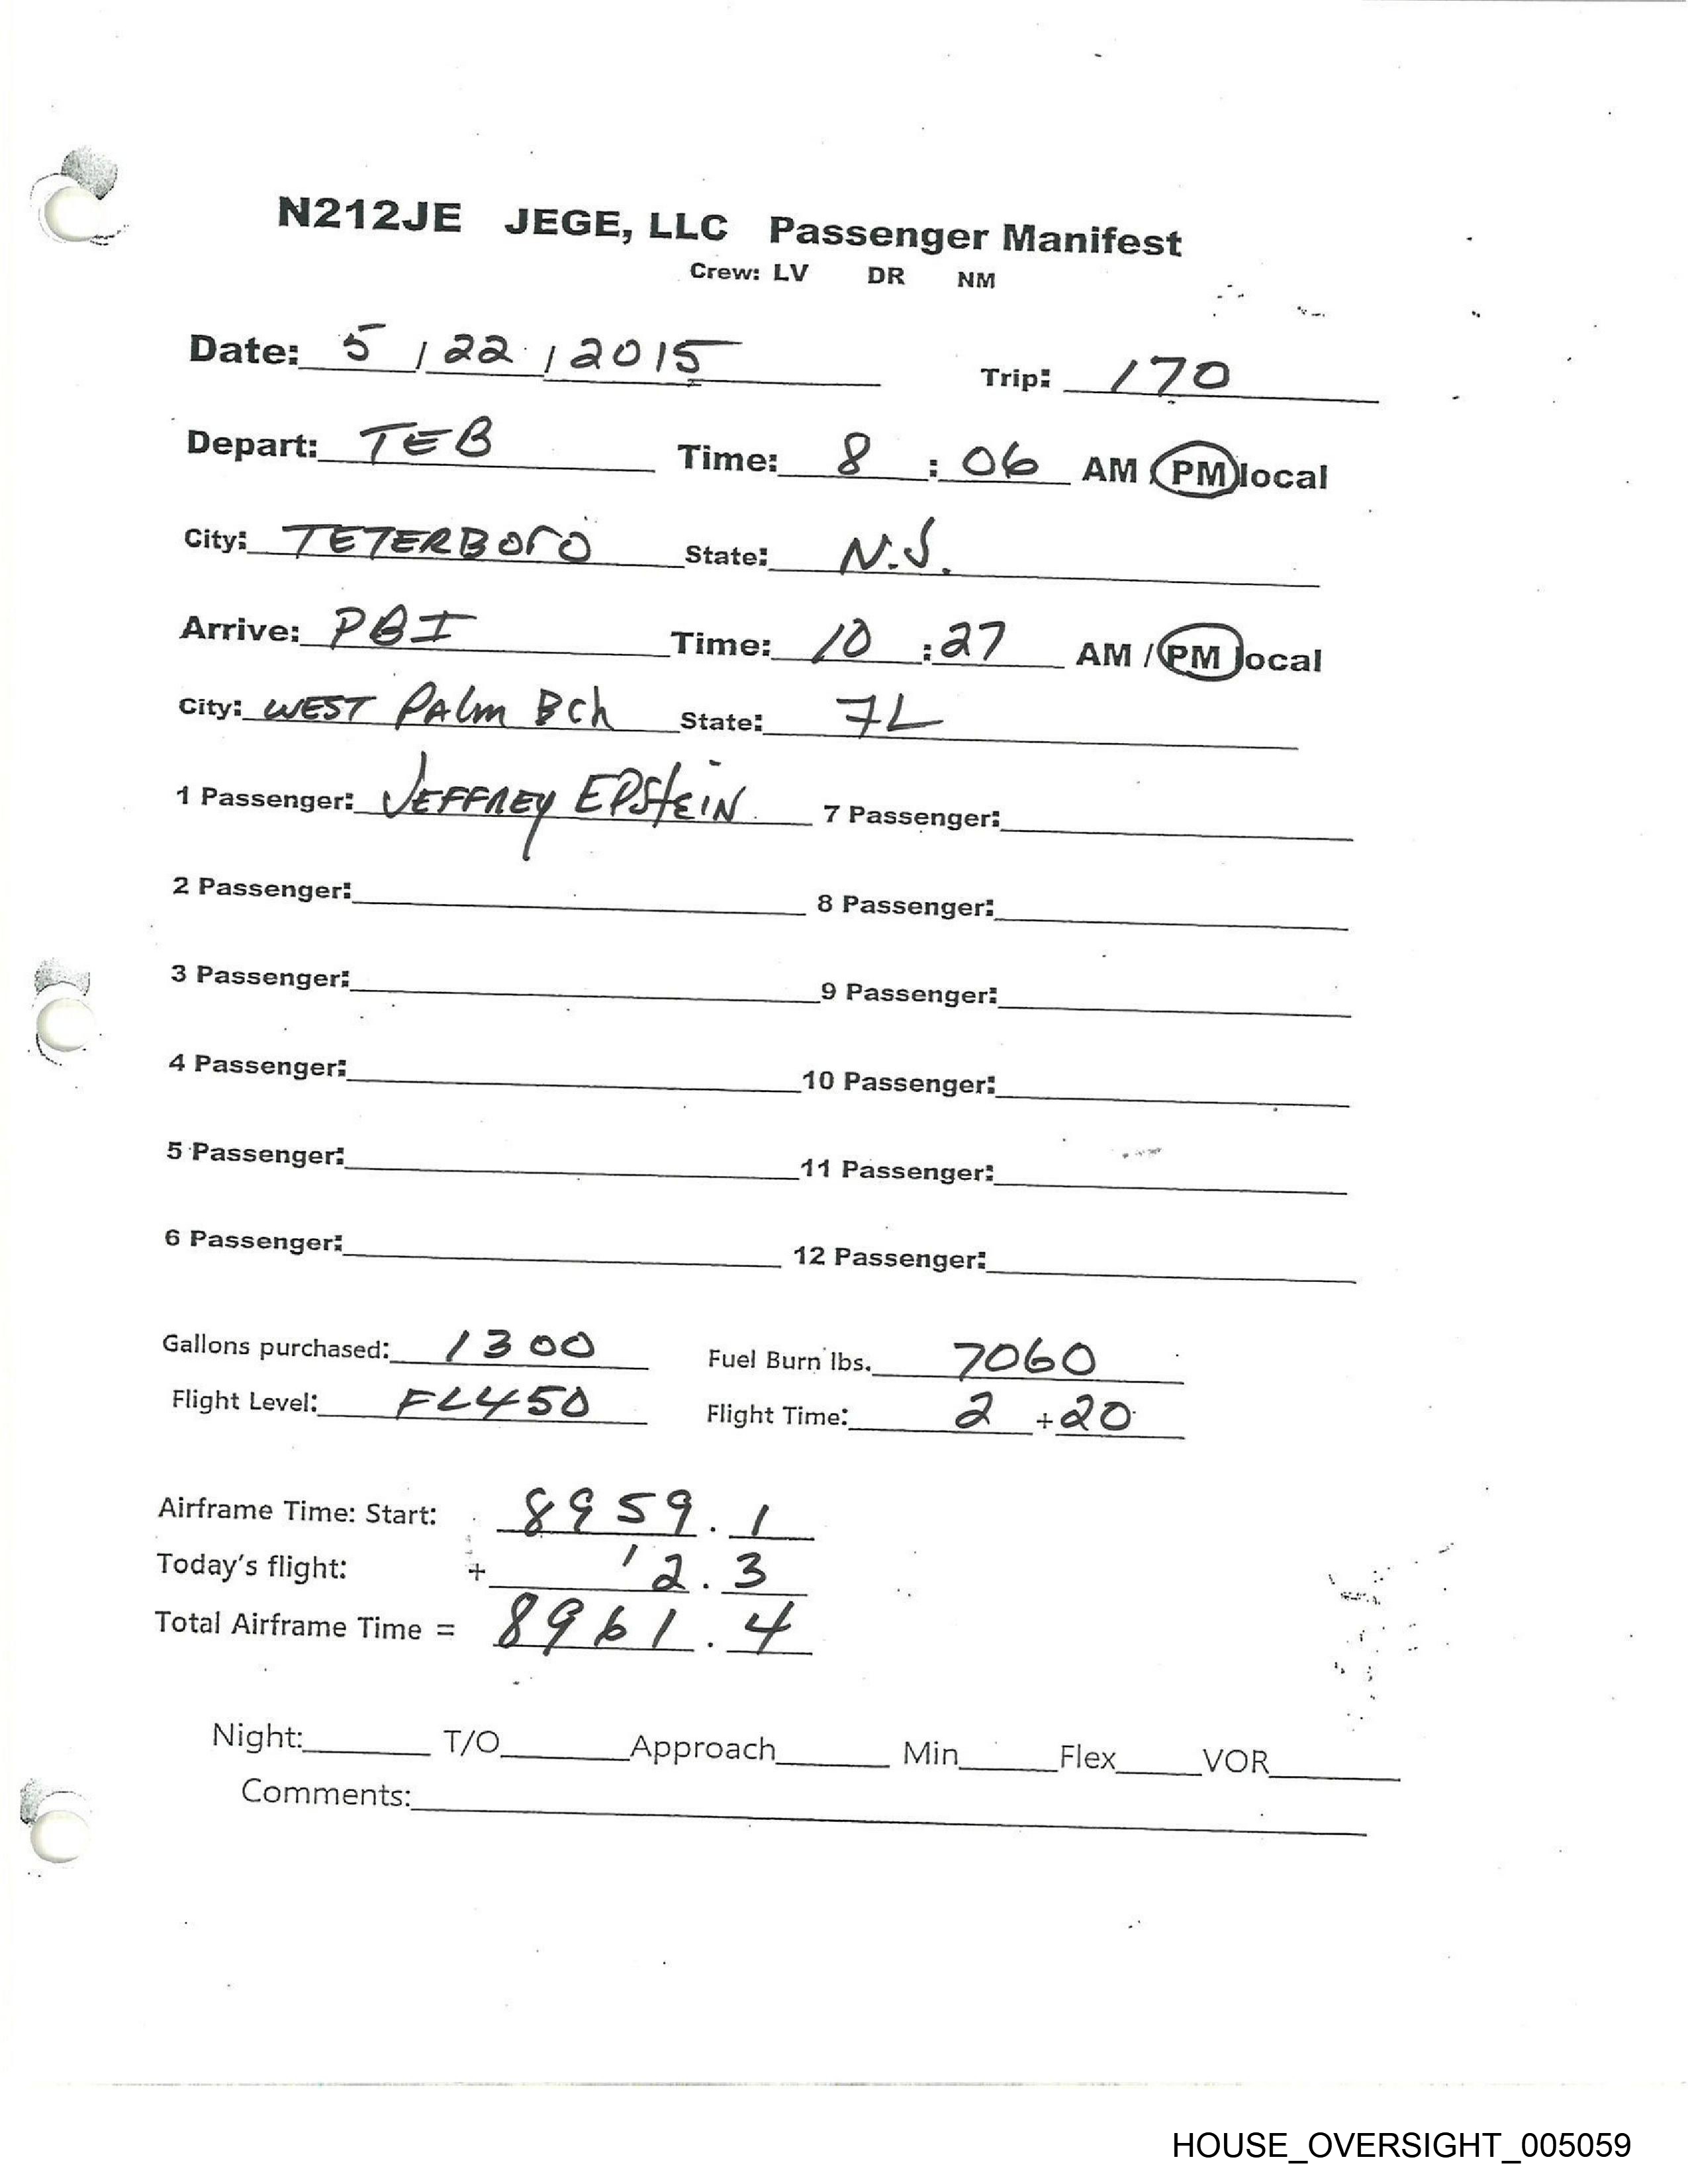 N212JE JEGE, LLC Passenger Manifest
Crew: LV DR NM
Date: 5 / 22 / 2015 Trip: 170
Depart: TEB Time: 8 : 06 AM / PM local
City: TETERBORO State: N.J.
Arrive: PBI Time: 10 : 27 AM / PM local
City: WEST PALM BCh State: FL
1 Passenger: JEFFREY EPSTEIN 7 Passenger:
2 Passenger: 8 Passenger:
3 Passenger: 9 Passenger:
4 Passenger: 10 Passenger:
5 Passenger: 11 Passenger:
6 Passenger: 12 Passenger:
Gallons purchased: 1300 Fuel Burn lbs. 7060
Flight Level: FL450 Flight Time: 2 + 20
Airframe Time: Start: 8959.1
Today's flight: + 2.3
Total Airframe Time = 8961.4
Night: T/O Approach Min Flex VOR
Comments:
HOUSE_OVERSIGHT_005059